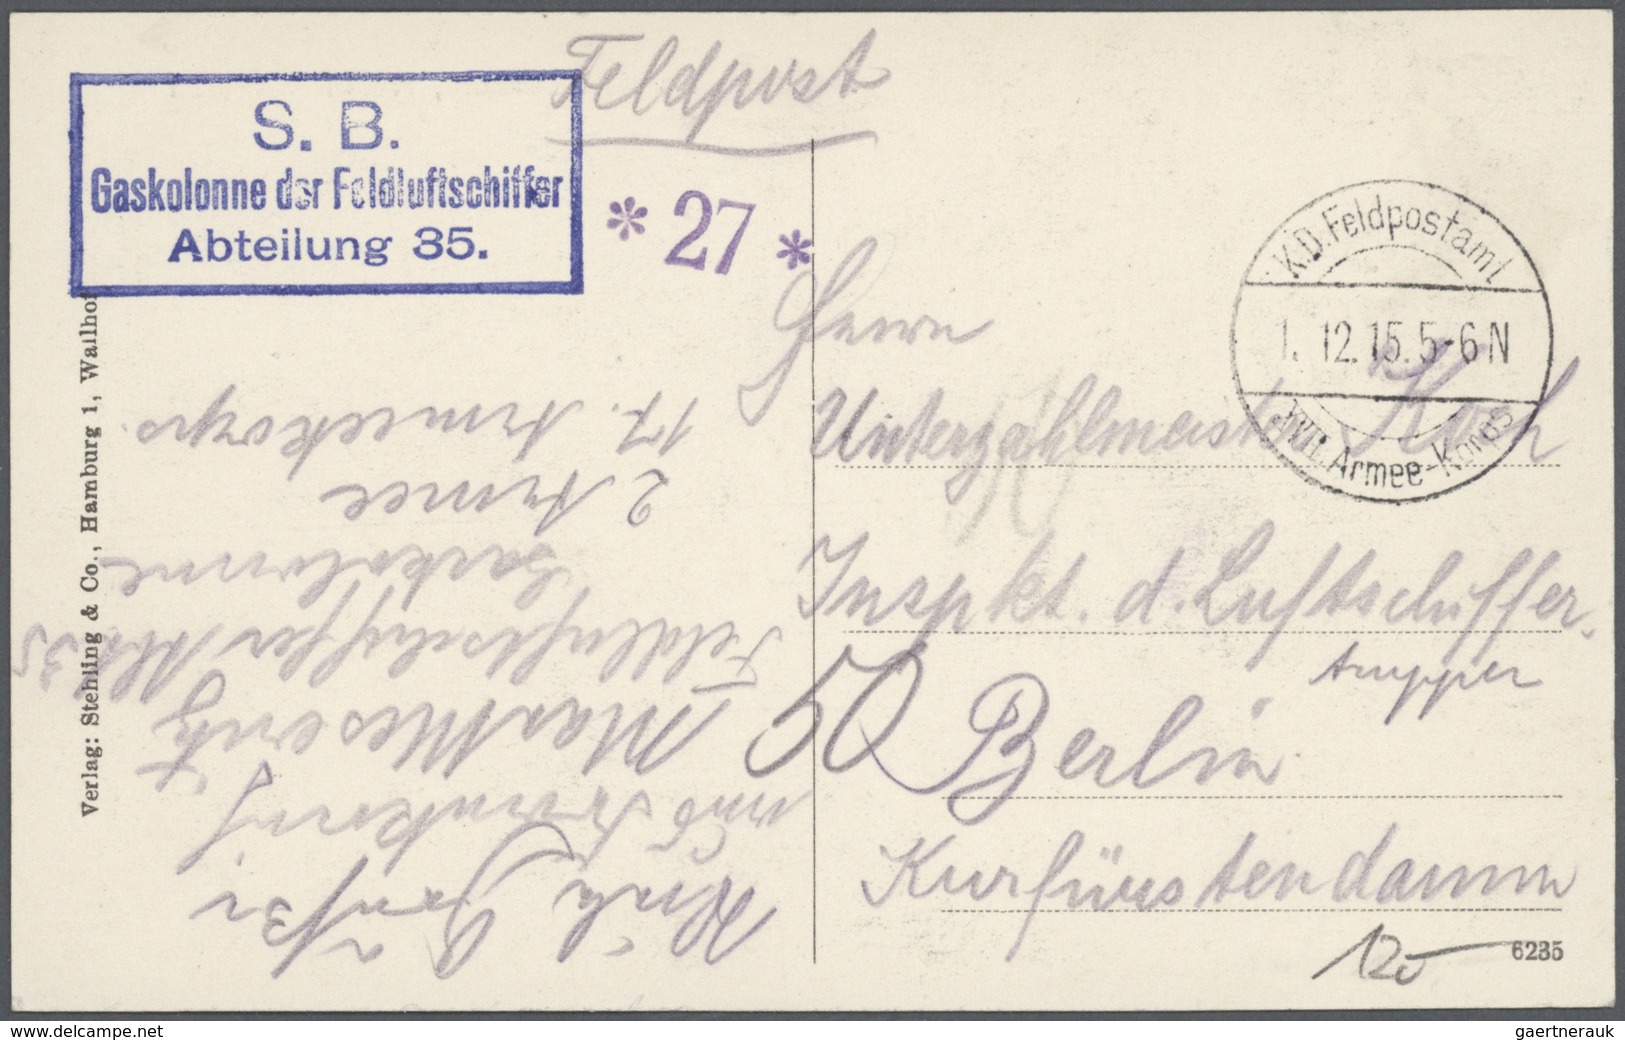 Feldpost
S. B.
Gaskolonne der Feldluftschiffer
Abteilung 35.
* 27 *
K.D. Feldpostamt
1. 12. 15. 5-6 N
XVII. Armee-Korps
Herrn
Unterzahlmeister Koch
Inspkt. d. Luftschiffer-
truppen
Berlin
Kurfürstendamm
50
120
6235
Verlag: Stehling & Co., Hamburg 1, Walhof
Feldluftschiffer Abt. 35
Gaskolonne
2. Armee
17. Armeekorps.
delcampe.net
gaertnerauk